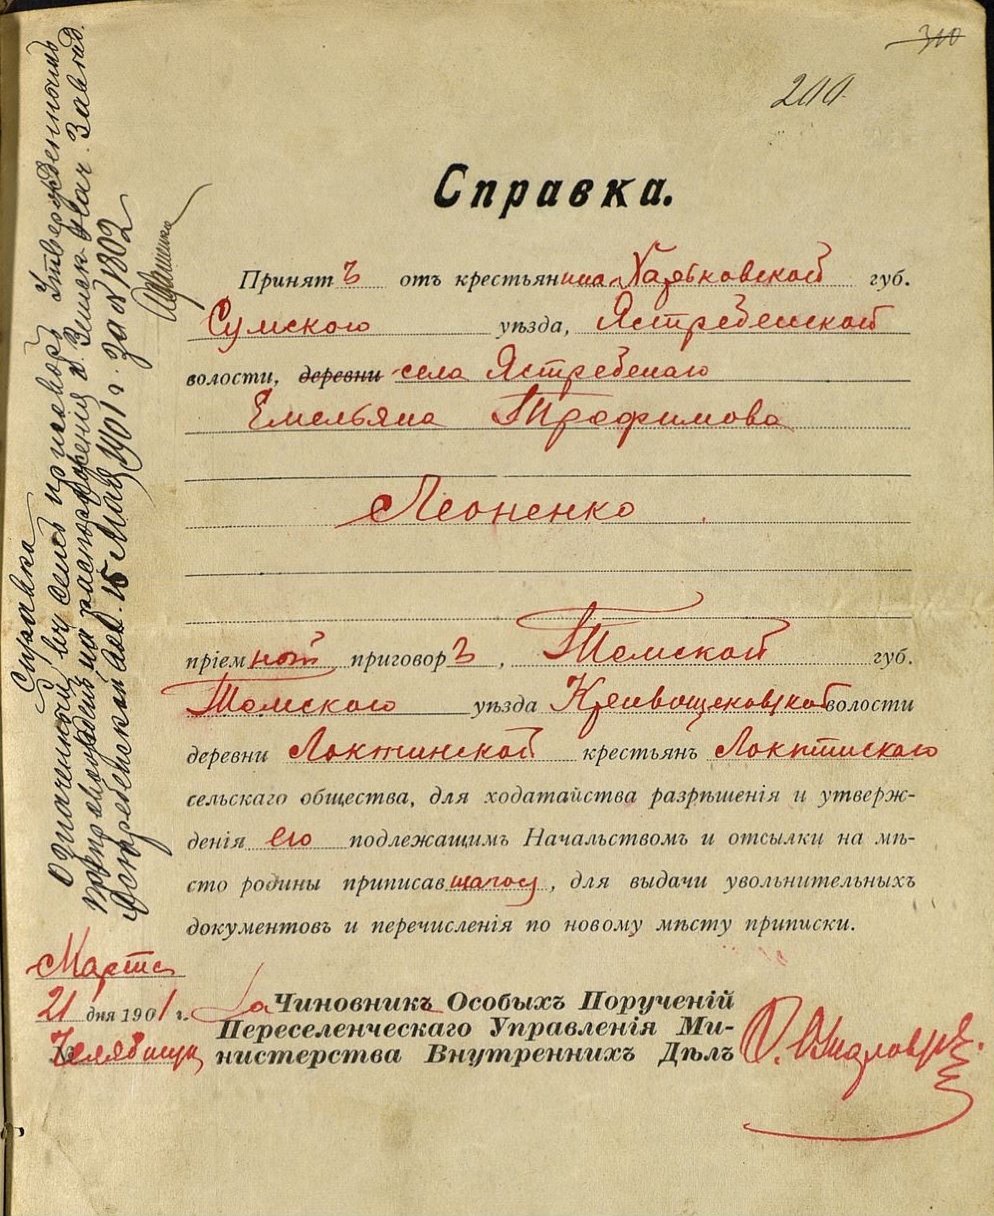 310
200
Справка.
Принятъ отъ крестьянина Харьковской губ.
Сумского уѣзда, Ястребенской
волости, деревни села Ястребенаго
Емельяна Трофимова
Леоненко
пріемный приговоръ, Томской губ.
Томского уѣзда Кривощековской волости
деревни Локтинской крестьянъ Локтинского
сельскаго общества, для ходатайства разрѣшенія и утверж-
денія его подлежащимъ Начальствомъ и отсылки на мѣ-
сто родины приписавшагося, для выдачи увольнительныхъ
документовъ и перечисленія по новому мѣсту приписки.
Марта
21 дня 1901 г.
Челябинск
За Чиновникъ Особыхъ Порученій
Переселенческаго Управленія Ми-
нистерства Внутреннихъ Дѣлъ
Справка
Означенный въ семъ приговоръ утвержденнымъ
препровожденъ на распоряженіе г. Земск. Нач. Завѣд.
Ястребенской вол. 15 Мая 1901 г. за № 1802